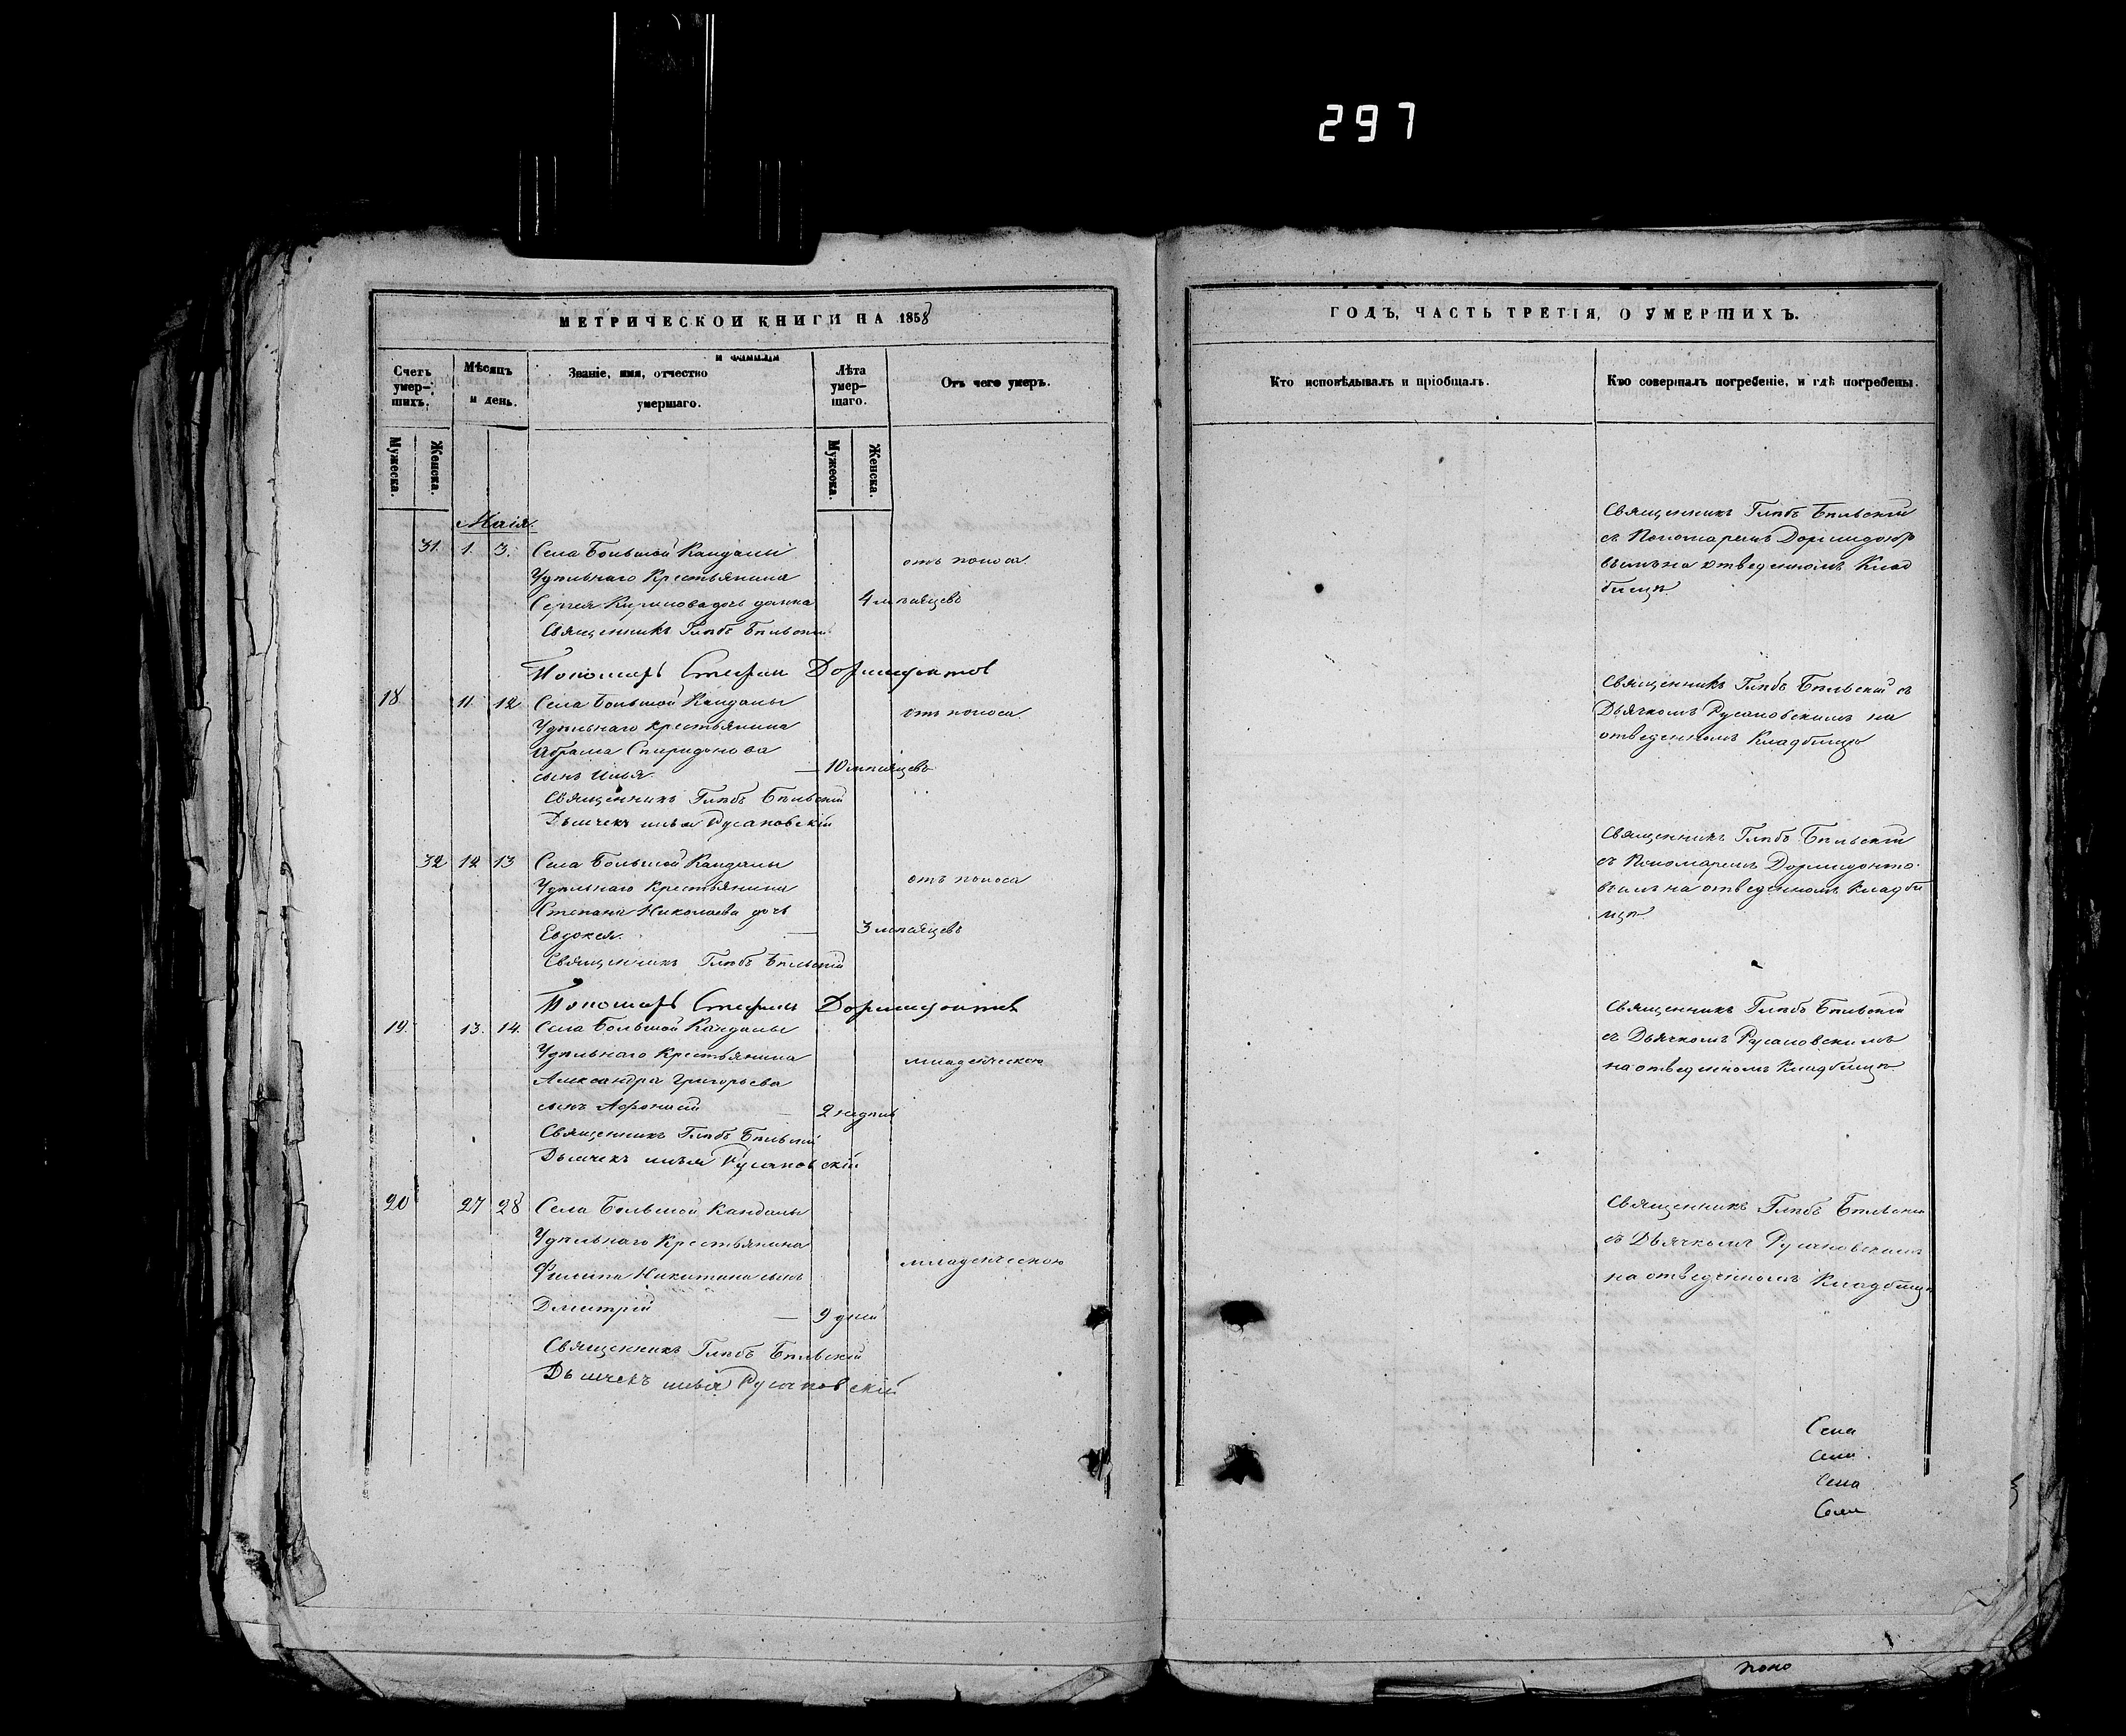 297
МЕТРИЧЕСКОЙ КНИГИ НА 1858
Счетъ умерших.
Мѣсяцъ и день.
Званіе, имя, отчество и фамилія умершаго.
Лѣта умершаго.
Отъ чего умеръ.
Мужеска.
Женска.
Мужеска.
Женска.
Маія.
31. 1. 3. Села Большой Кандалы
отъ поноса.
Удѣльнаго Крестьянина
Сергея дочь
4 мѣсяцевъ
Священникъ Глѣбъ Бѣльскій
Пономарь Стефан Дормидонтов
18. 11. 12 Села Большой Кандалы
отъ поноса.
Удѣльнаго крестьянина
Абрама Спиридонова
сынъ Илья. 10 мѣсяцевъ
Священникъ Глѣбъ Бѣльскій
Дьячекъ Илья Русановскій
32 12 13 Села Большой Кандалы
отъ поноса
Удѣльнаго Крестьянина
Степана Николаева дочь
Евдокея. 3 мѣсяцевъ
Священникъ Глѣбъ Бѣльскій
Пономарь Стефан Дормидонтов
19. 13. 14. Села Большой Кандалы
Удѣльнаго Крестьянина
младенческою
Александра Григорьева
сынъ Афонасій 2 недѣль
Священникъ Глѣбъ Бѣльскій
Дьячекъ Илья Русановскій
20 27 28 Села Большой Кандалы
Удѣльнаго Крестьянина
младенческою
Филипа Никитина сынъ
Дмитрій 9 дней
Священникъ Глѣбъ Бѣльскій
Дьячекъ Илья Русановскій
ГОДЪ, ЧАСТЬ ТРЕТІЯ, О УМЕРШИХЪ.
Кто исповѣдывалъ и пріобщалъ.
Кто совершалъ погребеніе, и гдѣ погребены.
Священникъ Глѣбъ Бѣльскій
съ Пономаремъ Дормидонто
вымъ на отведенномъ Клад
бищѣ.
Священникъ Глѣбъ Бѣльскій съ
Дьячкомъ Русановскимъ на
отведенномъ Кладбищѣ
Священникъ Глѣбъ Бѣльскій
съ Пономаремъ Дормидонто
вымъ на отведенномъ Кладби
щѣ.
Священникъ Глѣбъ Бѣльскій
съ Дьячкомъ Русановскимъ
на отведенномъ Кладбищѣ.
Священникъ Глѣбъ Бѣльскій
съ Дьячкомъ Русановскимъ
на отведенномъ Кладбищѣ
Села
Села
Села
Села
поно